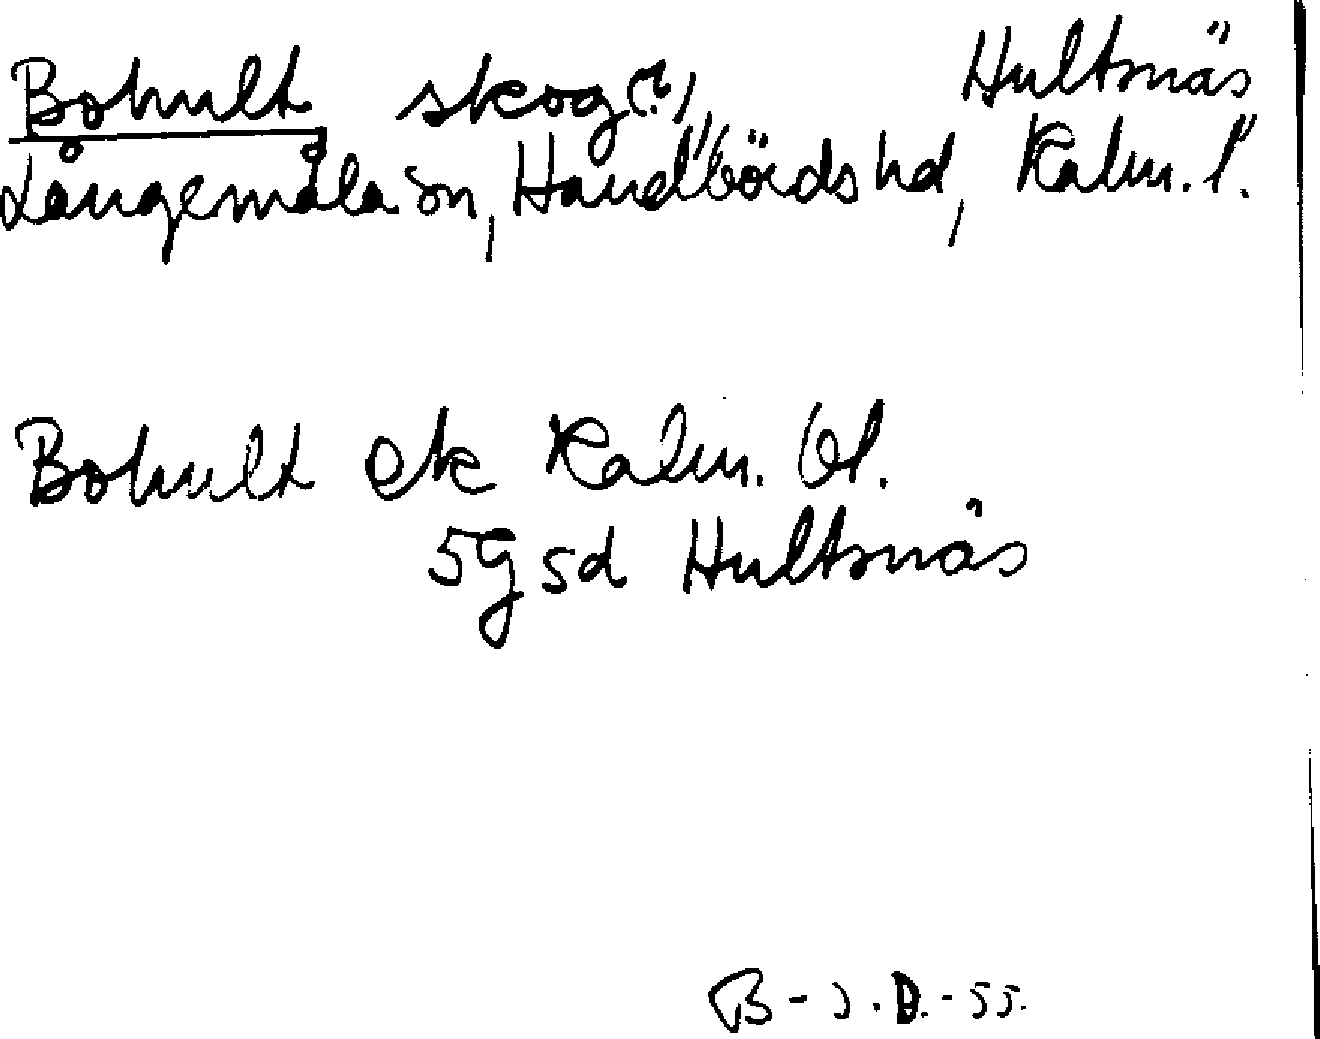 Bohult skog(?), Hultsnäs
Långemåla sn, Handbörds hd, Kalm. l.
Bohult ek Kalm. bl.
5g sd Hultsnäs
B-J.D.-55.